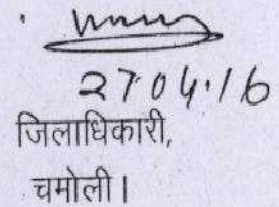 27.04.16
जिलाधिकारी,
चमोली।